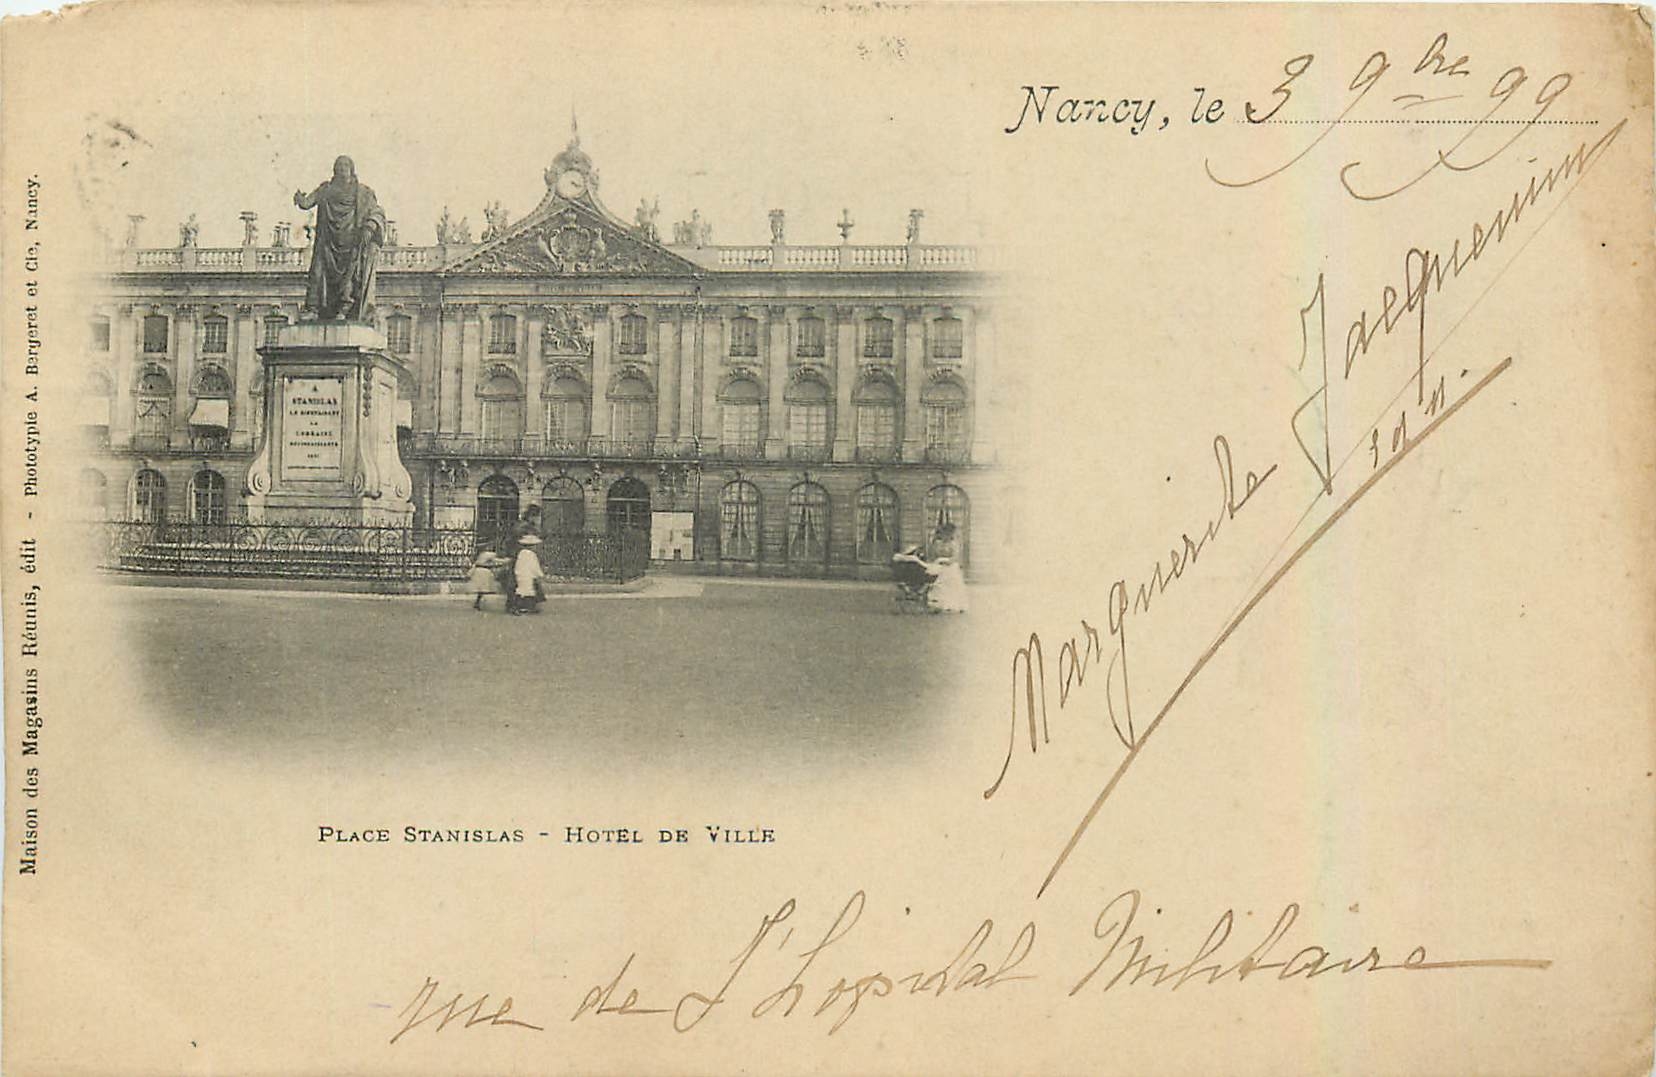 Nancy, le 3 9bre 99
Marguerite Jacquemin
rue de l'hopital Militaire
PLACE STANISLAS - HOTEL DE VILLE
Maison des Magasins Réunis, édit - Phototypie A. Bergeret et Cie, Nancy.
A
STANISLAS
LE BIENFAISANT
LA
LORRAINE
RECONNAISSANTE
1831